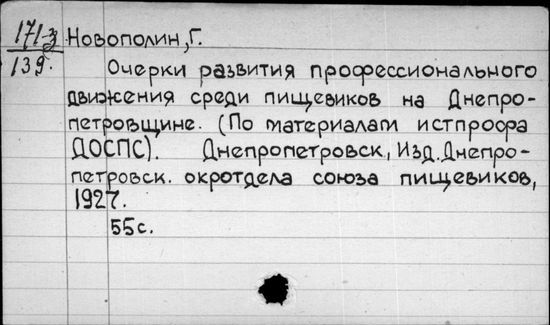 171-з Новополин, Г.
139.
Очерки развития профессионального
движения среди пищевиков на Днепро-
петровщине. (По материалам истпрофа
ДОСПС). Днепропетровск, Изд. Днепро-
петровск. окротдела союза пищевиков,
1927.
55с.